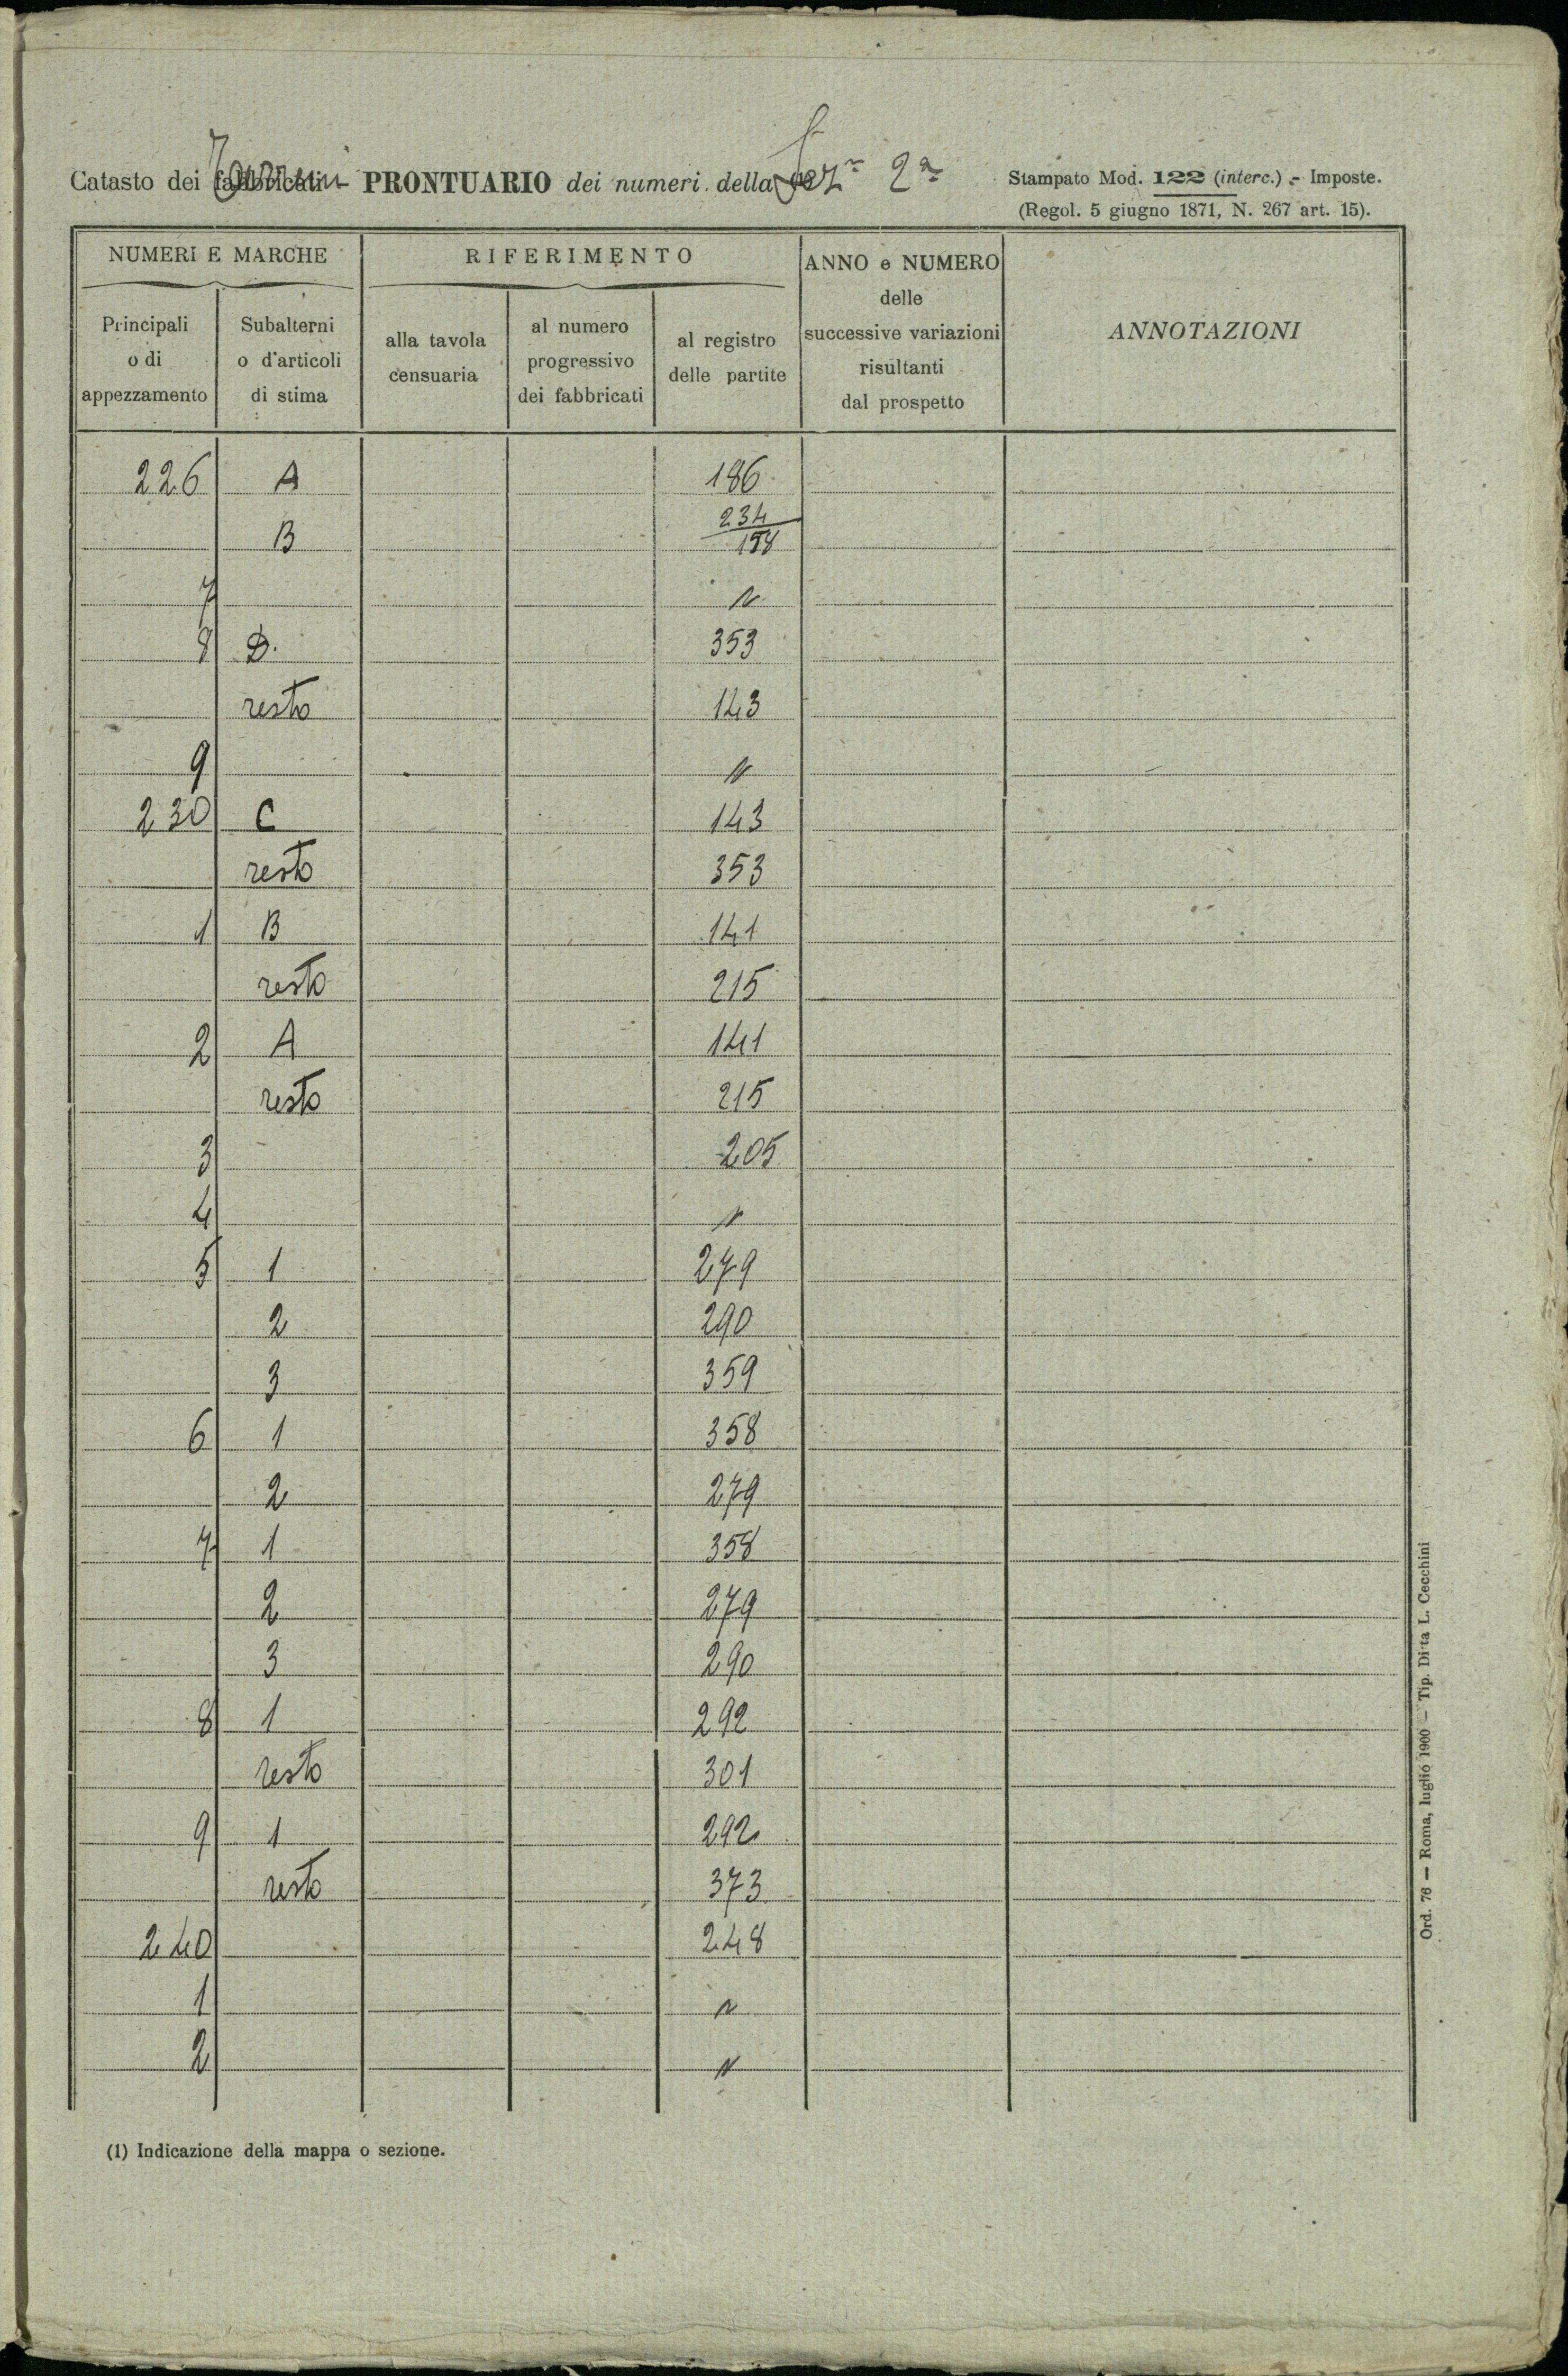 Catasto dei fabbricati Terreni - PRONTUARIO dei numeri della Sez.e 2a
Stampato Mod. 122 (interc.) - Imposte.
(Regol. 5 giugno 1871, N. 267 art. 15).
NUMERI E MARCHE
RIFERIMENTO
ANNO e NUMERO
delle
successive variazioni
risultanti
dal prospetto
ANNOTAZIONI
Principali
o di
appezzamento
Subalterni
o d'articoli
di stima
alla tavola
censuaria
al numero
progressivo
dei fabbricati
al registro
delle partite
226 A 186
234
B 158
7 "
8 D. 353
resto 143
9 "
230 C 143
resto 353
1 B 141
resto 215
2 A 141
resto 215
3 205
4 "
5 1 279
2 290
3 359
6 1 358
2 279
7 1 358
2 279
3 290
8 1 292
resto 301
9 1 292
resto 373
240 248
1 "
2 "
(1) Indicazione della mappa o sezione.
Ord. 76 — Roma, luglio 1900 — Tip. Ditta L. Cecchini